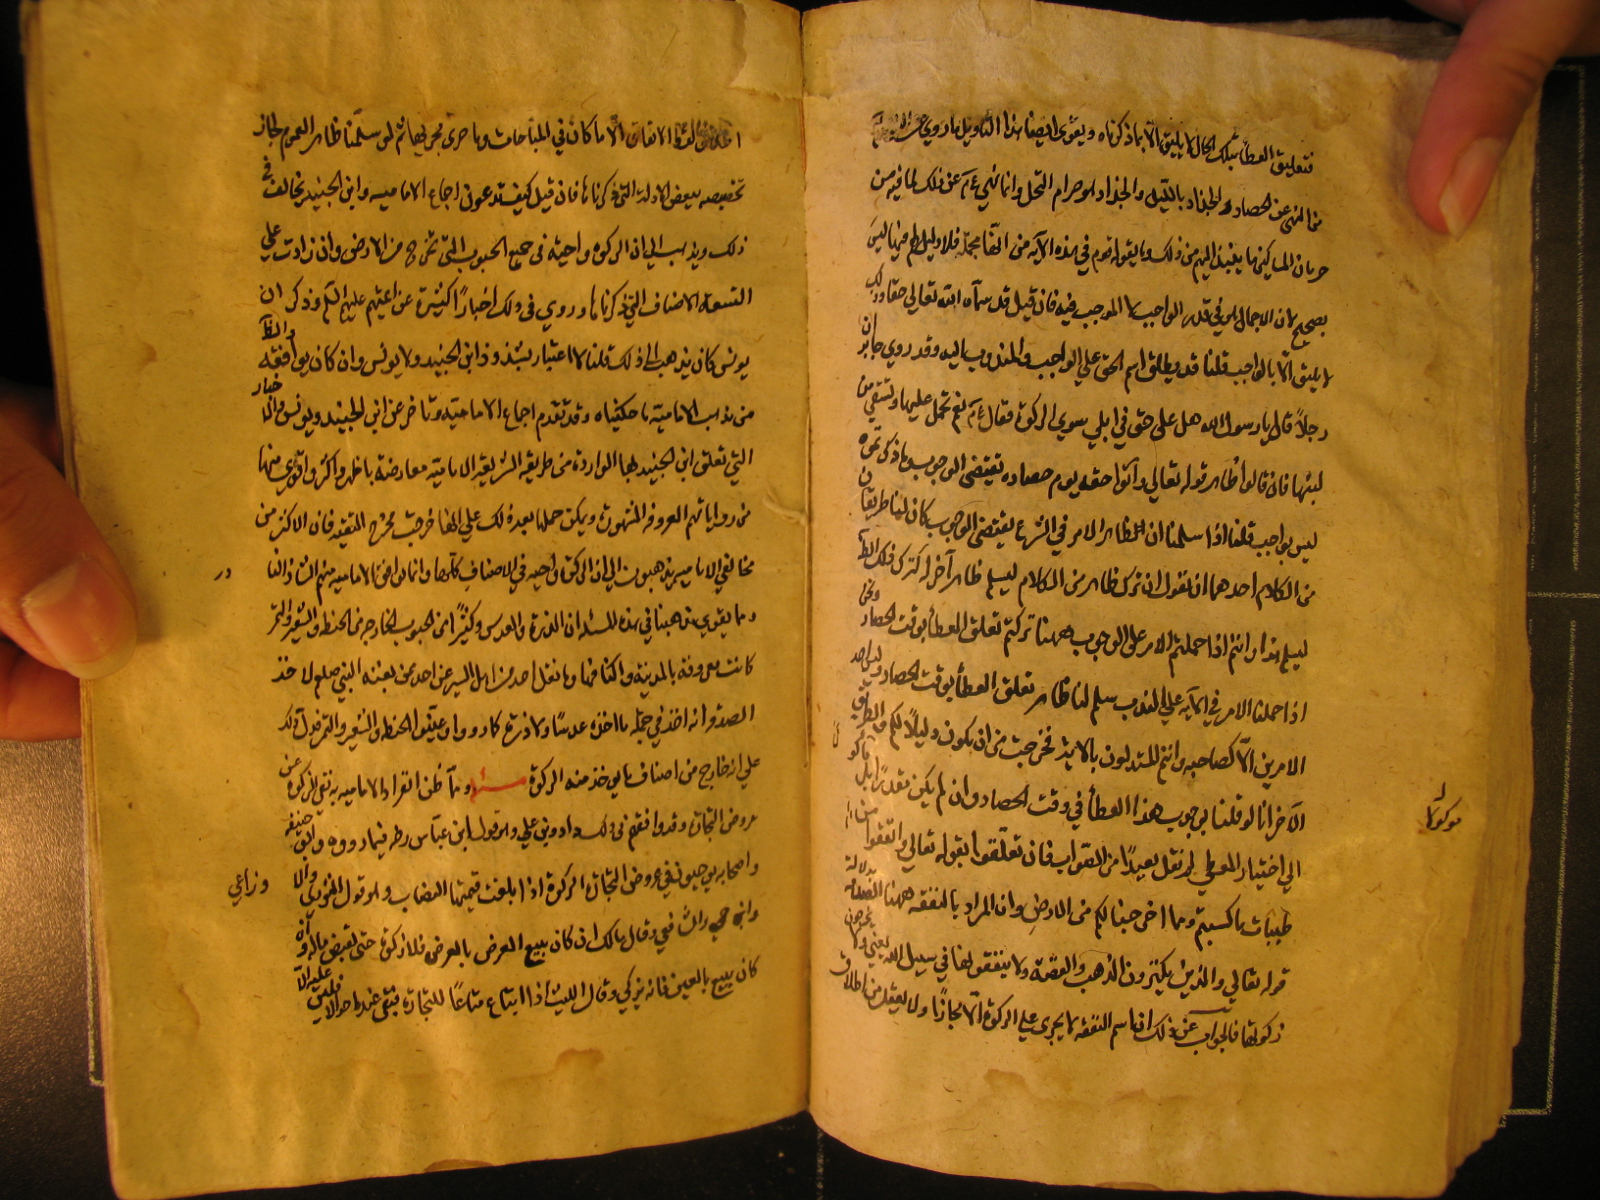 فتعليق العطأ بتلك الحال لا يليق الا بما ذكرناه ويقوى ايضا هذا التاويل ما روي
من النهي عن الحصاد والجذاذ بالليل والجذاذ هو صرام النخل وانما نهي ع م عن ذلك لما فيه من
حرمان المساكين ما ينبذ اليهم من ذلك وما يقوله قوم في هذه الآية من انها مجملة فلا دليل لهم فيها ليس
بصحيح لان الاجمال هو في قدر الواجب لا الموجب فيه فان قيل قد سماه الله تعالى حقا وذلك
لا يليق الا بالواجب قلنا قد يطلق اسم الحق على الواجب والمندوب اليه وقد روي جابر ان
رجلاً قال يا رسول الله هل علي حق في ابلي سوي الزكوة فقال ع م نعم تحمل عليها وتسقي من
لبنها فان قالوا ظاهر قوله تعالي وآتوا حقه يوم حصاده يقتضي الوجوب وما ذكرتموه
ليس بواجب قلنا اذا سلمنا ان ظاهر الامر في الشرع يقتضي الوجوب كان لنا طريقان
من الكلام احدهما ان نقول ان ترك ظاهر من الكلام ليسلم ظاهر آخر له كترك ذلك الظ
ليسلم هذا وانتم اذا حملتم الامر على الوجوب ههنا تركتم تعلق العطأ بوقت الحصاد ونحن
اذا حملنا الامر في الآية على الندب سلم لنا ظاهر تعلق العطأ بوقت الحصاد وليس احد
الامرين الا كصاحبه وانتم المستدلون بالاية فخرجت من ان يكون دليلاً لكم والطريق
الآخر انا لو قلنا بوجوب هذا العطأ في وقت الحصاد وان لم يكن مقدراً بل موكولا
الي اختيار المعطي لم نقل بعيداً من الصواب فان تعلقوا بقوله تعالي وانفقوا من
طيبات ما كسبتم ومما اخرجنا لكم من الارض وان المراد بالنفقة ههنا الصدقة بدلالة
قوله تعالي والذين يكنزون الذهب والفضة ولا ينفقونها في سبيل الله يعني ولا يخرجون
زكوتها فالجواب عن ذلك ان اسم النفقة لا يجري على الزكوة الا مجازاً ولا يعقل من اطلاق
موكولا
اطلاق لفظ الانفاق الا ما كان في المباحات وما جرى مجريها ثم لو سلمنا ظاهر العموم لجاز
تخصيصه ببعض الادلة التي ذكرناها فان قيل كيف تدعون اجماع الامامية وابن الجنيد يخالف في
ذلك ويذهب الى ان الزكوة واجبة في جميع الحبوب التي تخرج من الارض وان زادت على
التسعة الاصناف التي ذكرناها وروي في ذلك اخباراً كثيرة عن ائمتهم عليهم السلم وذكر ان
يونس كان يذهب الى ذلك قلنا لا اعتبار بشذوذ ابن الجنيد ولا يونس وان كان يوافقه والظ
من مذهب الامامية ما حكيناه وقد تقدم اجماع الامامية وتاخر عن ابن الجنيد ويونس والاخبار
التي تعلق ابن الجنيد بها الواردة من طريق الشيعة الامامية معارضة باظهر واكثر واقوى منها
من رواياتهم المعروفة المشهورة ويمكن حملها بعد ذلك علي انها خرجت مخرج التقية فان الاكثر من
مخالفي الامامية يذهبون الى ان الزكوة واجبة في الاصناف كلها وانما يوافق الامامية منهم الشاذ النادر
ومما يقوي مذهبنا في هذه المسئلة ان الذرة والعدس وكثيراً من الحبوب الخارجة من الحنطة والشعير والتمر
كانت معروفة بالمدينة واكنافها وما نقل احد من اهل السير عن احد ممن بعثه النبي صلعم لاخذ
الصدقة انه اخذ في جملة ما اخذه عدساً ولا ذرة كما رووا وعينوا الحنطة والشعير والتمر فدل ذلك
علي انه خارج من اصناف ما يوخذ منه الزكوة مسئلة ومما ظن انفراد الامامية به نفي الزكوة عن
عروض التجارة وقد وافقهم في ذلك داود بن علي وهو قول ابن عباس ره فيما رووه وابو حنيفة
واصحابه يوجبون في عروض التجارة الزكوة اذا بلغت قيمتها النصاب وهو قول الثوري والاوزاعي
وابن حي والشافعي وقال مالك ان كان يبيع العرض بالعرض فلا زكوة حتى يقبض ماله وان
كان يبيع بالعين فانه يزكي وقال الليث اذا ابتاع متاعاً للتجارة فبقي عنده احوالا فليس عليه الا